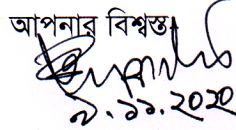 আপনার বিশ্বস্ত
৯.১১.২০২০